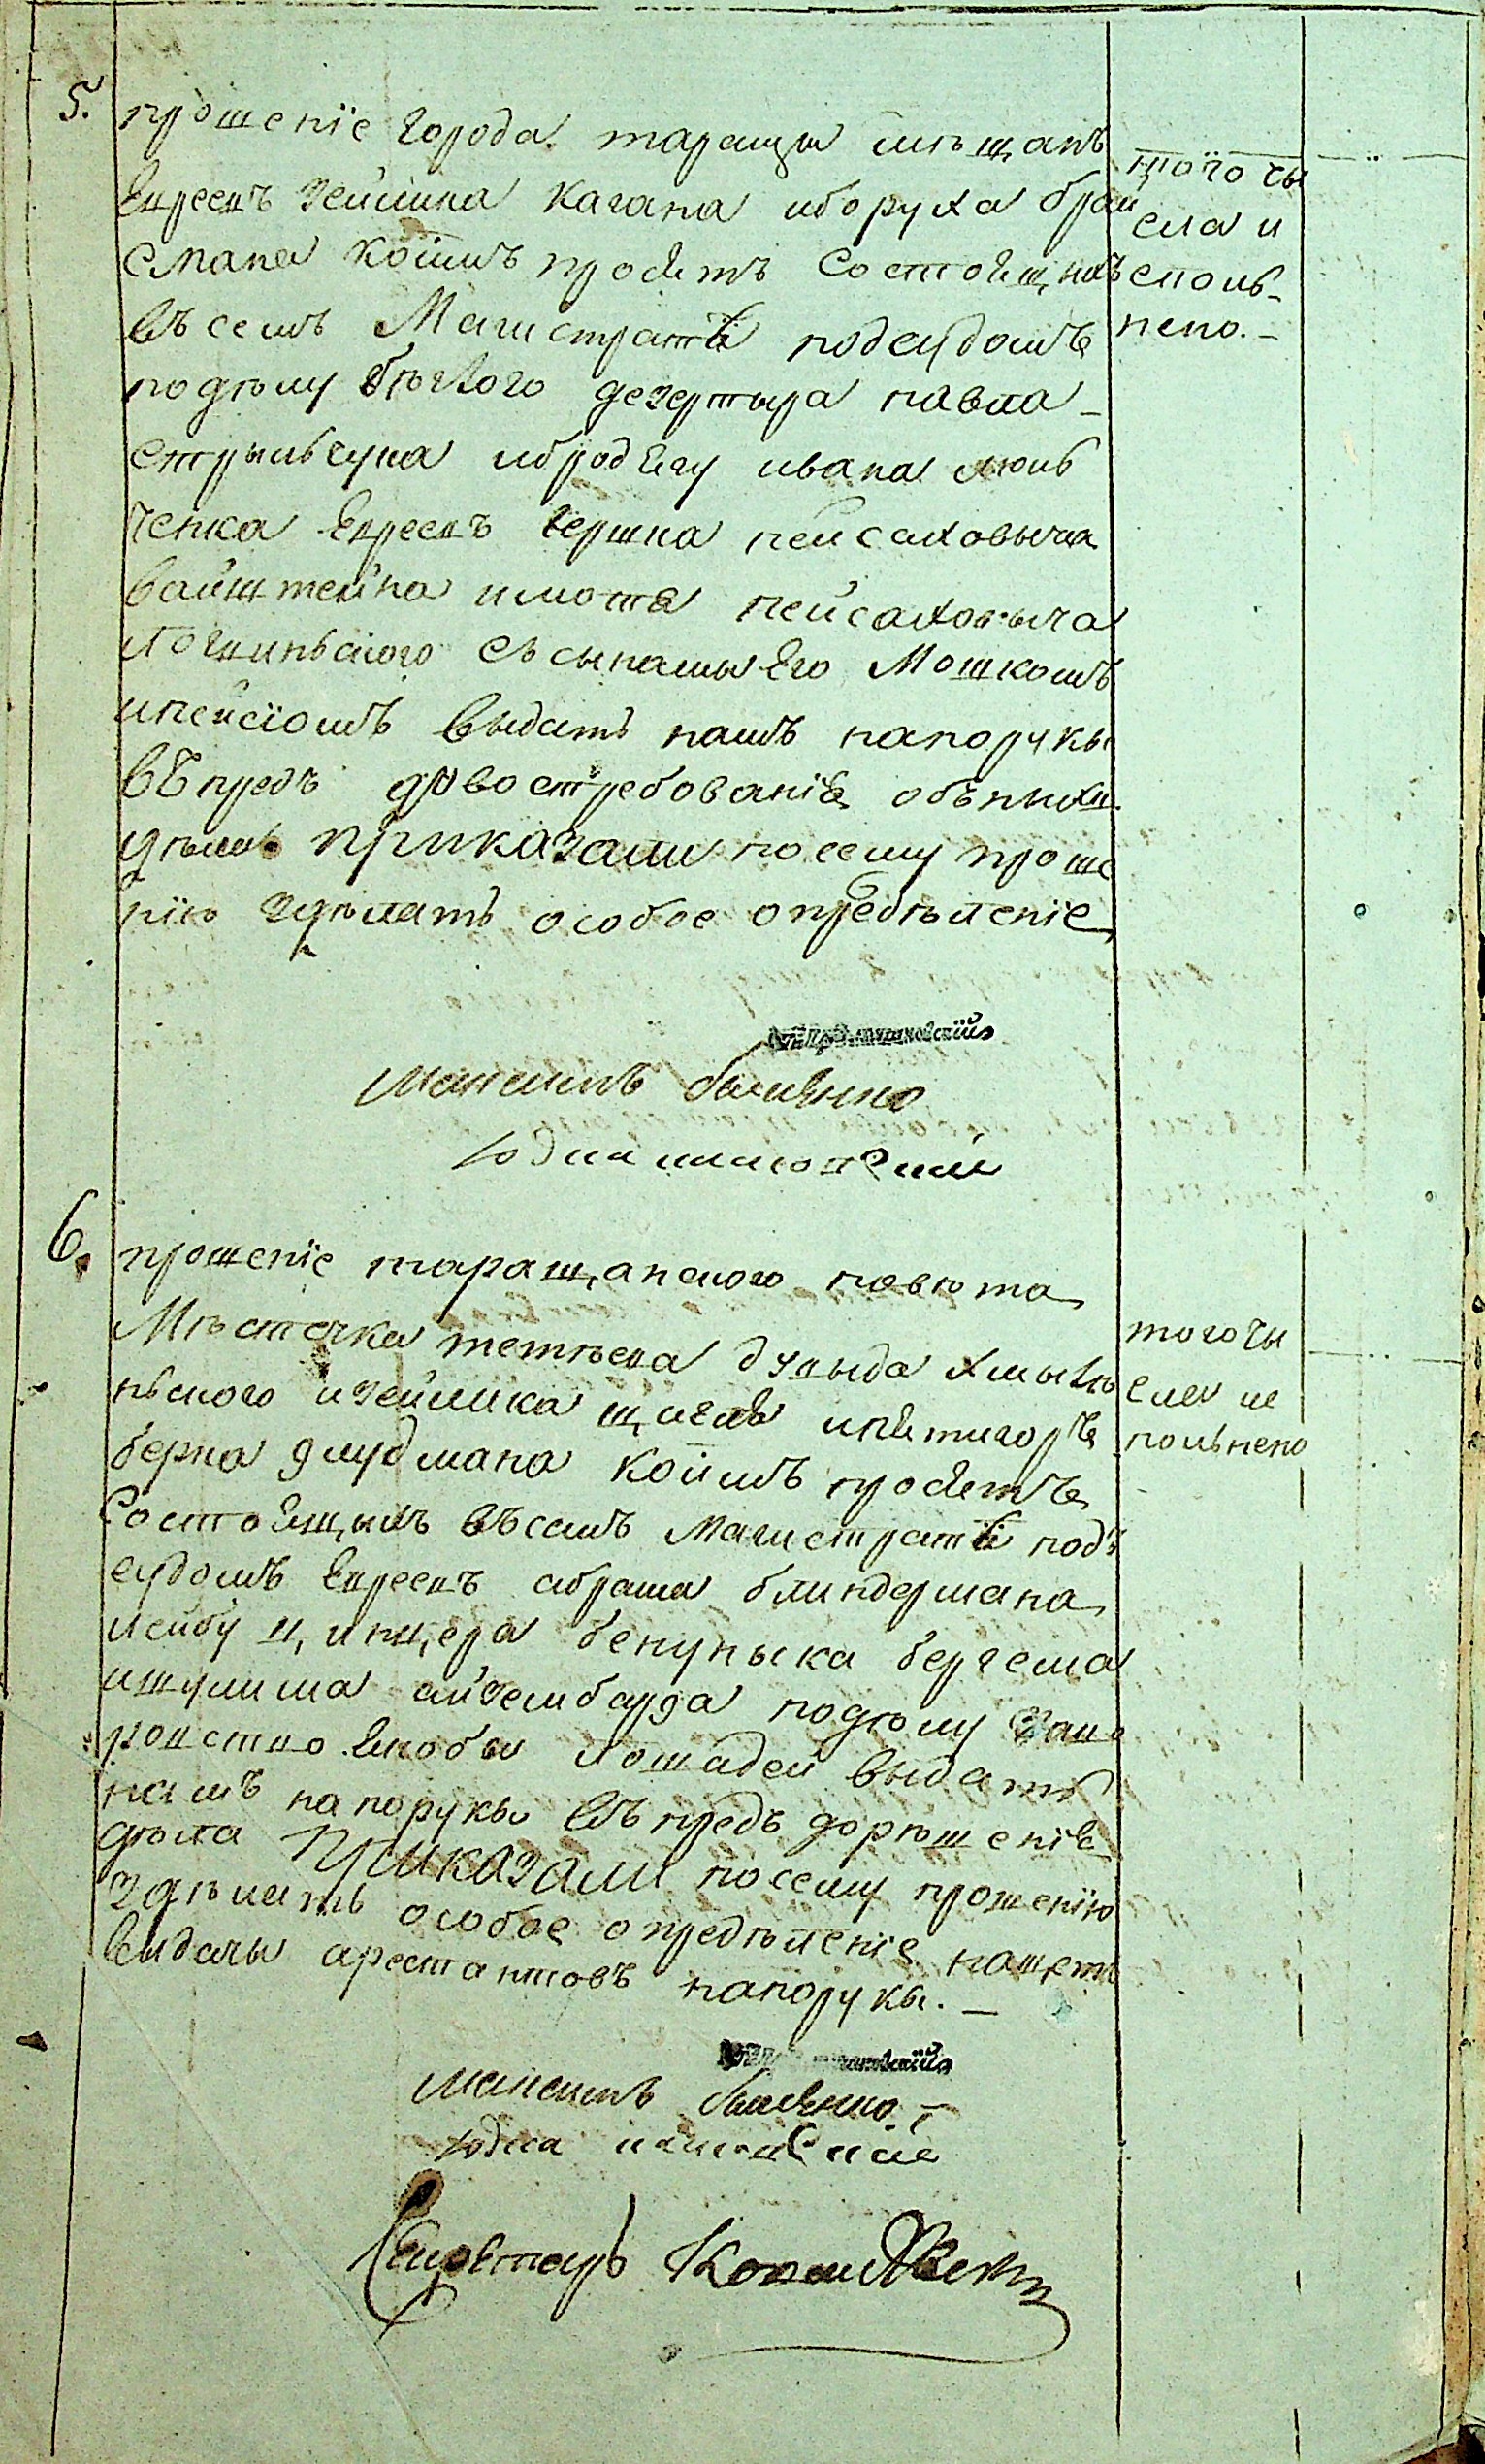 5. прошеніе города таращи мѣщанъ
Евреевъ зейлика кагана иборуха брай
смана коимъ просятъ состоящихъ
въ семъ Магистратѣ подсудомъ
подѣлу бѣглого дезертыра павла
стрыльчука ибродягу ивана люль
ченка Евреевъ гершка пейсаховыча
вайштейна имотя пейсаховыча
логвинского съ сынамы Его Мошкомъ
ипейсіомъ выдать намъ напорукы
въпредъ довостребованія объныхъ
дѣламъ приказали посему проше
нію здѣлать особое опредѣленіе
того чы
сла и
сполъ-
нено. -
Максимъ
юдка
6. прошеніе таращанского повѣта
Мѣстечка тетѣева дувыда хмыль
нского изейлика щигля ипятигоръ
берка длудмана коимъ просятъ
состоящыхъ въсемъ магистратѣ подъ
судомъ Евреевъ абрама блиндермана
лейбу цинцера бенуныка бергема
ишулима айзембарда подѣлу заво
ровство якобы лошадей выдать
намъ напорукы въпредъ дорѣшенія
дѣла Приказали посему прошенію
здѣлать особое опредѣленіе нащетъ
выдачы арестантовъ напорукы. -
того чы
сла ис
полънено
Максимъ
юдка
Секретарь